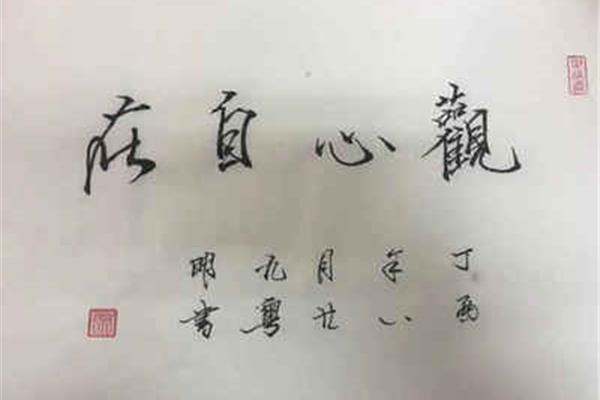 觀心自在
丁酉
年八
月廿
九粤
明书